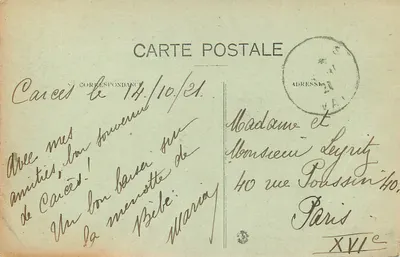 CARTE POSTALE
CORRESPONDANCE
ADRESSE
Carcès le 14/10/21.
Avec mes
amitiés, bon souvenir
de Carcès!
Un bon baiser sur
la menotte de
Bébé.
Maria
Madame et
Monsieur Leyritz
40 rue Poussin 40.
Paris
XVIe